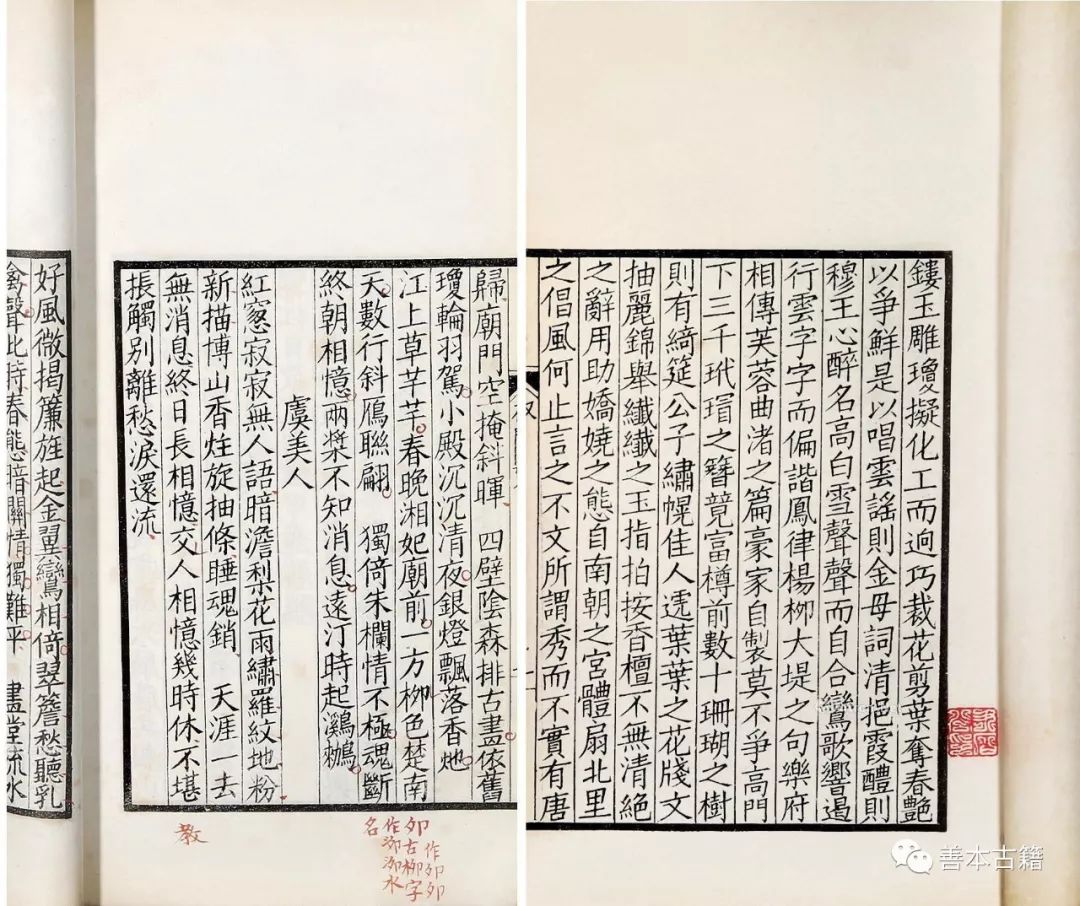 鏤玉雕瓊擬化工而迥巧裁花剪葉奪春艷
以爭鮮是以唱雲謠則金母詞清挹霞醴則
穆王心醉名高白雪聲聲而自合鸞歌響遏
行雲字字而偏諧鳳律楊柳大堤之句樂府
相傳芙蓉曲渚之篇豪家自製莫不爭高門
下三千玳瑁之簪競富樽前數十珊瑚之樹
則有綺筵公子繡幌佳人遞葉葉之花牋文
抽麗錦舉纖纖之玉指拍按香檀不無清絕
之辭用助嬌嬈之態自南朝之宮體扇北里
之倡風何止言之不文所謂秀而不實有唐
歸廟門空掩斜暉　四壁陰森排古畫依舊
瓊輪羽駕小殿沉沉清夜銀燈飄落香灺
江上草芊芊春晚湘妃廟前一方柳色楚南
天數行斜鴈聯翩　獨倚朱欄情不極魂斷
終朝相憶兩槳不知消息遠汀時起鸂鶒
虞美人
紅窓寂寂無人語暗澹梨花雨繡羅紋地粉
新描博山香炷旋抽條睡魂銷　天涯一去
無消息終日長相憶交人相憶幾時休不堪
掁觸別離愁淚還流
教
作卯卯
卯古柳字
作泖泖水
名
好風微揭簾旌起金翼鸞相倚翠簷愁聽乳
禽聲此時春態暗關情獨難平　畫堂流水
善本古籍